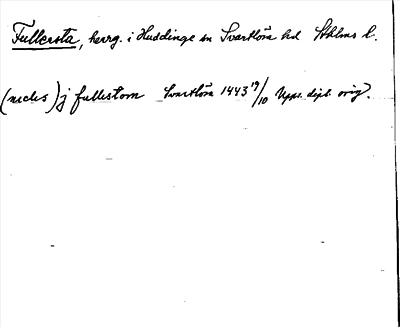 Fullersta, herrg. i Huddinge sn Svartlösa hd Sthlms l.
(nedis) j fullestom Svartlösa 1443 19/10 Upps. dipl. orig.